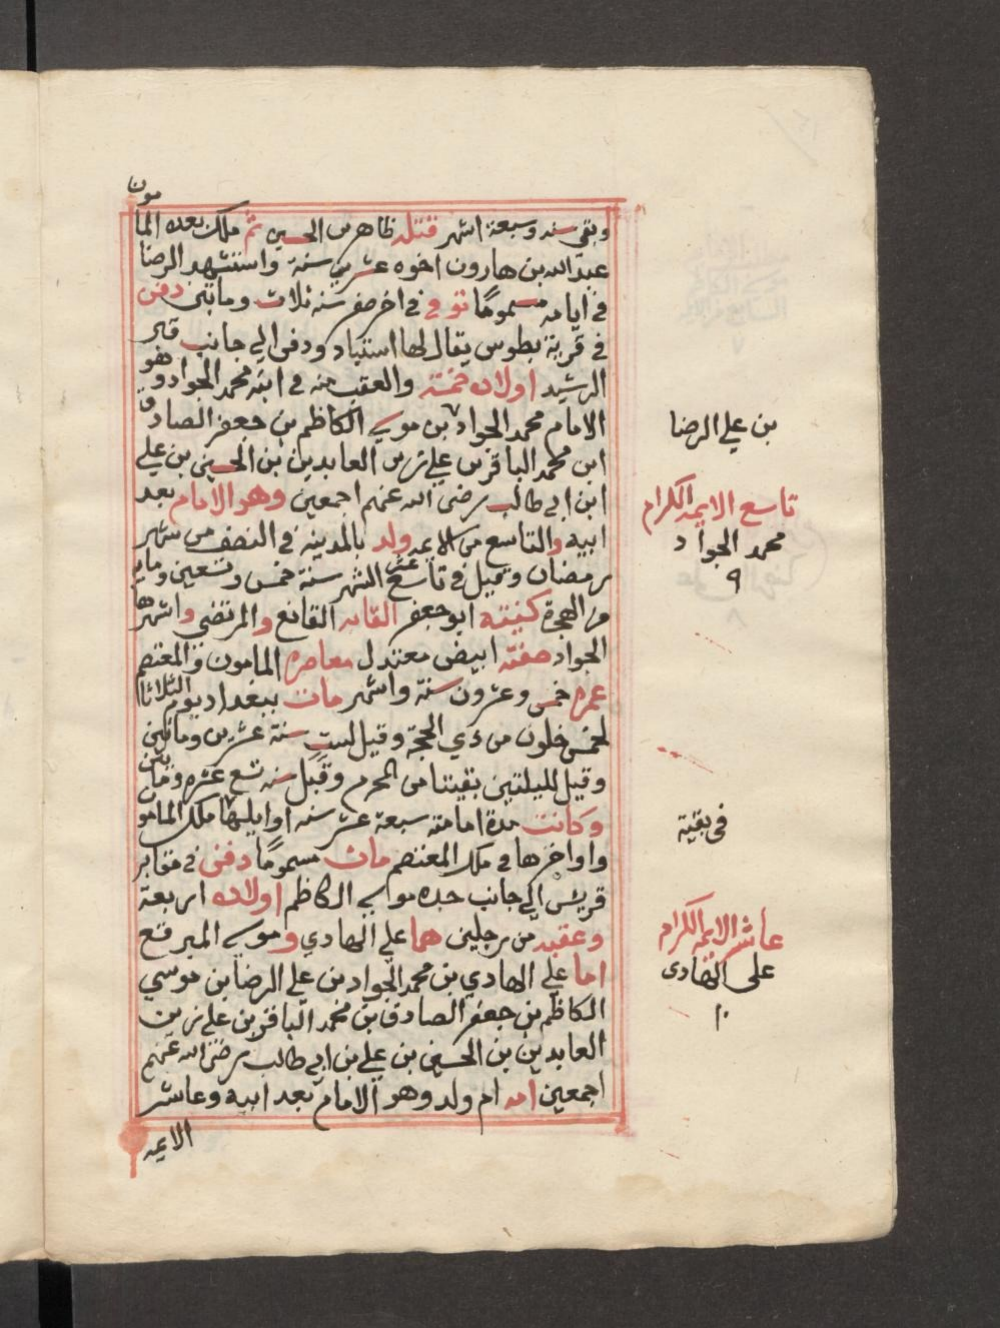 وبقي سنه وسبعة اشهر قتله طاهر بن الحسين ثم ملك بعده الما
مون
عبد الله بن هارون اخوه عشرين سنة واستشهد الرضا
في ايامه مسموما توفي في اخر صفر سنه ثلاث وماتين دفن
في قرية بطوس يقال لها استناد ودفن الي جانب قبر
الرشيد اولاده خمسة والعقب منه في ابنه محمد الجواد وهو
الامام محمد الجواد بن موسي الكاظم بن جعفر الصادق
ابن محمد الباقر بن علي زين العابدين بن الحسين بن علي
ابن ابي طالب رضي الله عنهم اجمعين وهو الامام بعد
ابيه والتاسع من الايمه ولد بالمدينه في النصف من شهر
رمضان وقيل في تاسع عشر الشهر سنة خمس وتسعين وماية
من الهجرة كنيته ابو جعفر القابه القانع والمرتضي واشهرها
الجواد صفته ابيض معتدل معاصره المامون والمعتصم
عمره خمس وعشرون سنة واشهر مات ببغداد يوم الثلاثا
لخمس خلون من ذي الحجة وقيل لست سنة عشرين وماتين
وقيل لليلتين بقيتا من المحرم وقيل سنه تسع عشره وماتين
وكانت مدة امامته سبعة عشر سنه اوايلها ملك المامو
واواخرها في ملك المعتصم مات مسموما دفن في مقابر
قريش الي جانب جده موسي الكاظم اولاده اربعة
وعقبه من رجلين هما علي الهادي وموسي المبرقع
اما علي الهادي بن محمد الجواد بن علي الرضا بن موسي
الكاظم بن جعفر الصادق بن محمد الباقر بن علي زين
العابدين بن الحسين بن علي بن ابي طالب رضي الله عنهم
اجمعين امه ام ولد وهو الامام بعد ابيه وعاشر
الايمه
بن علي الرضا
تاسع الايمه الكرام
محمد الجواد
٩
في بقية
عاشر الايمه الكرام
على الهادى
١٠